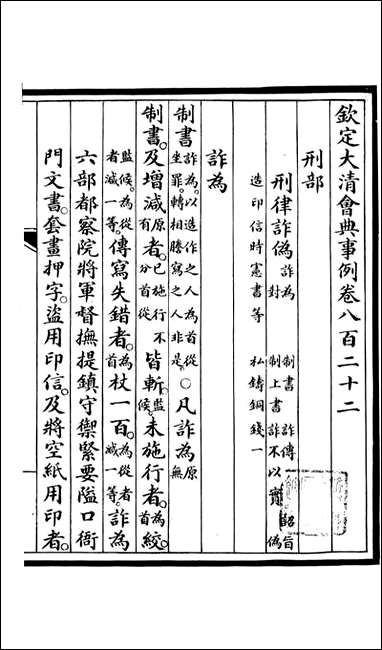 欽定大清會典事例卷八百二十二
刑部
刑律詐偽 詐為制書 詐傳詔旨 對制上書詐不以實 偽
造印信時憲書等 私鑄銅錢一
詐為
制書詐為以造作之人為首從坐罪。轉相謄寫之人非是。○凡詐為原無
制書。及增減原有者。已施行不分首從皆斬。監候。未施行者。為首絞。
監候。為從者減一等。傳寫失錯者。為首杖一百。為從者減一等。詐為
六部都察院將軍督撫提鎮守禦緊要隘口衙
門文書。套畫押字。盜用印信。及將空紙用印者。